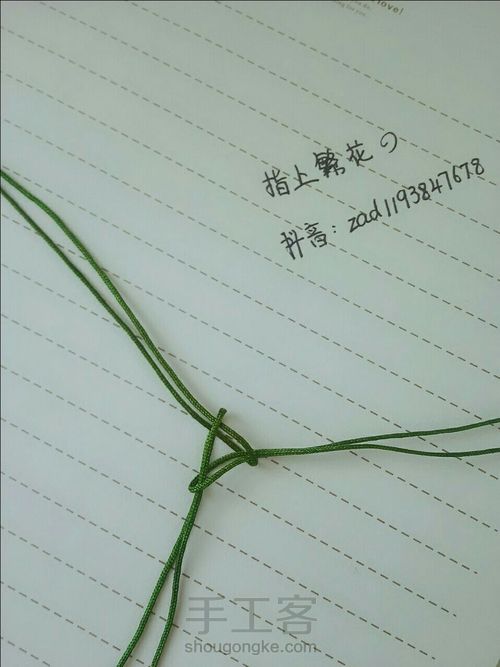 move!
指上繁花の
抖音: zad1193847678
手工客
shougongke.com